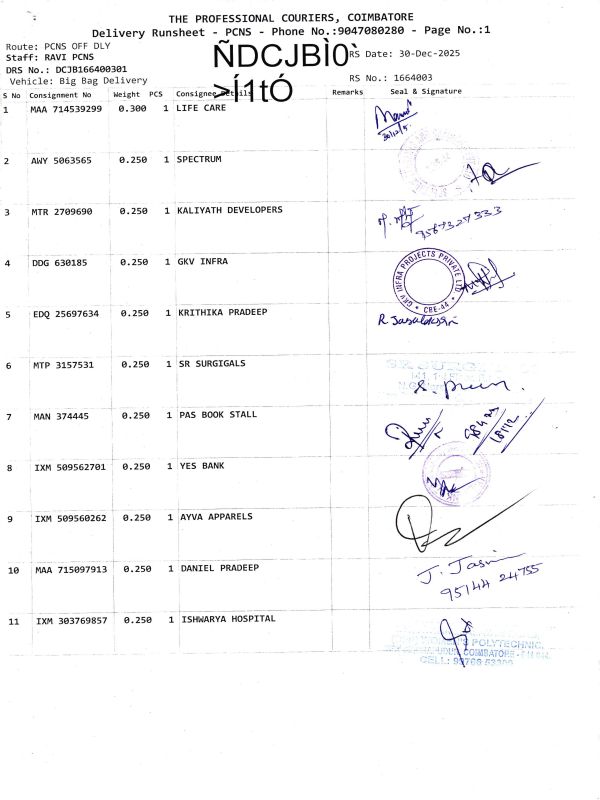 THE PROFESSIONAL COURIERS, COIMBATORE
Delivery Runsheet - PCNS - Phone No.:9047080280 - Page No.:1
Route: PCNS OFF DLY
Staff: RAVI PCNS
DRS No.: DCJB166400301
Vehicle: Big Bag Delivery
ÑDCJBÌ0`
>Í1tÓ
RS Date: 30-Dec-2025
RS No.: 1664003
S No Consignment No Weight PCS Consignee Details Remarks Seal & Signature
1 MAA 714539299 0.300 1 LIFE CARE
30/12/5
2 AWY 5063565 0.250 1 SPECTRUM
3 MTR 2709690 0.250 1 KALIYATH DEVELOPERS
9587327333
4 DDG 630185 0.250 1 GKV INFRA
GKV INFRA PROJECTS PRIVATE LTD * CBE-44 *
5 EDQ 25697634 0.250 1 KRITHIKA PRADEEP
6 MTP 3157531 0.250 1 SR SURGIGALS
7 MAN 374445 0.250 1 PAS BOOK STALL
8 IXM 509562701 0.250 1 YES BANK
9 IXM 509560262 0.250 1 AYVA APPARELS
10 MAA 715097913 0.250 1 DANIEL PRADEEP
95144 24755
11 IXM 303769857 0.250 1 ISHWARYA HOSPITAL
POLYTECHNIC
COIMBATORE
CELL: